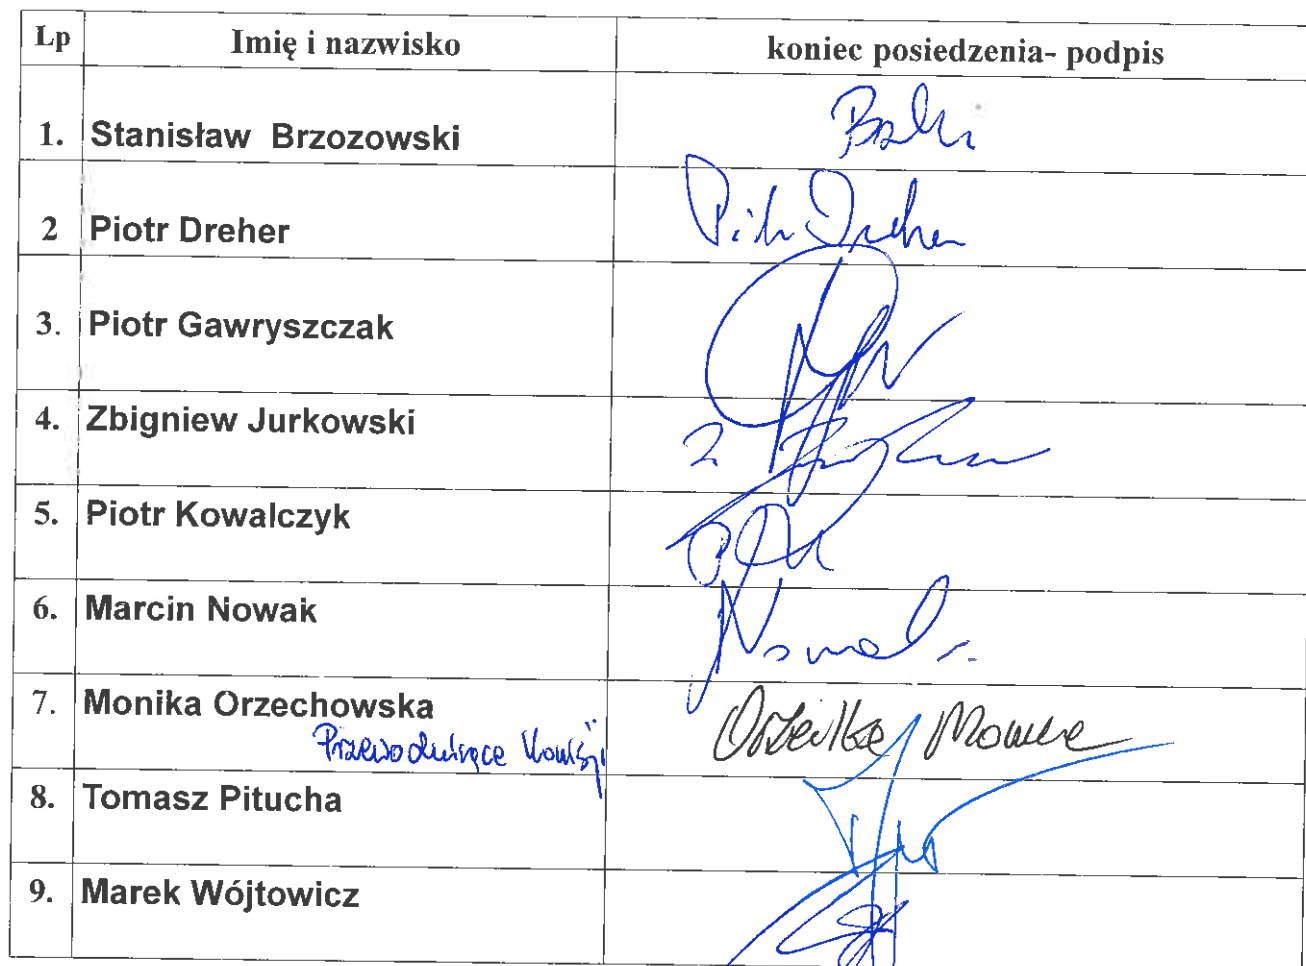 Lp Imię i nazwisko koniec posiedzenia- podpis
1. Stanisław Brzozowski
2 Piotr Dreher Piotr Dreher
3. Piotr Gawryszczak
4. Zbigniew Jurkowski
5. Piotr Kowalczyk
6. Marcin Nowak
7. Monika Orzechowska
Przewodnicząca Komisji
8. Tomasz Pitucha
9. Marek Wójtowicz